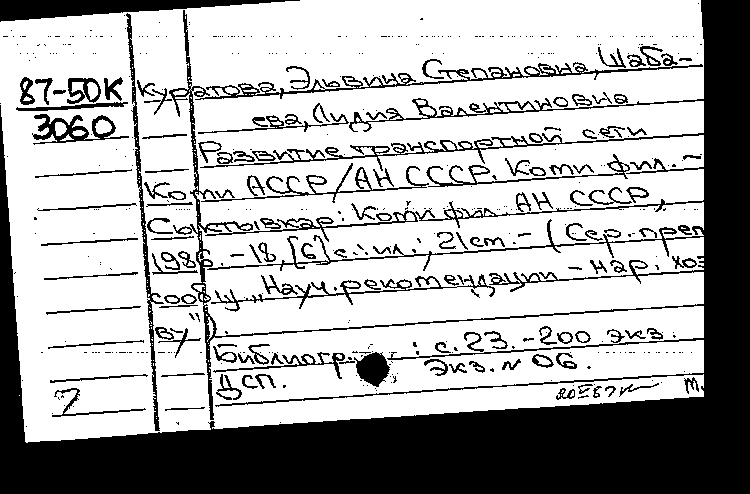 87-50К
3060
Куратова, Эльвина Степановна, Шаба-
ева, Лидия Валентиновна
Развитие транспортной сети
Коми АССР / АН СССР. Коми фил. -
Сыктывкар: Коми фил. АН СССР,
1986. - 18, [6] с.: ил.; 21 см. - (Сер. преп
сообщ. „Науч. рекомендации - нар. хоз
ву").
Библиогр.: с. 23. - 200 экз.
ДСП. Экз. № 06.
7
М.